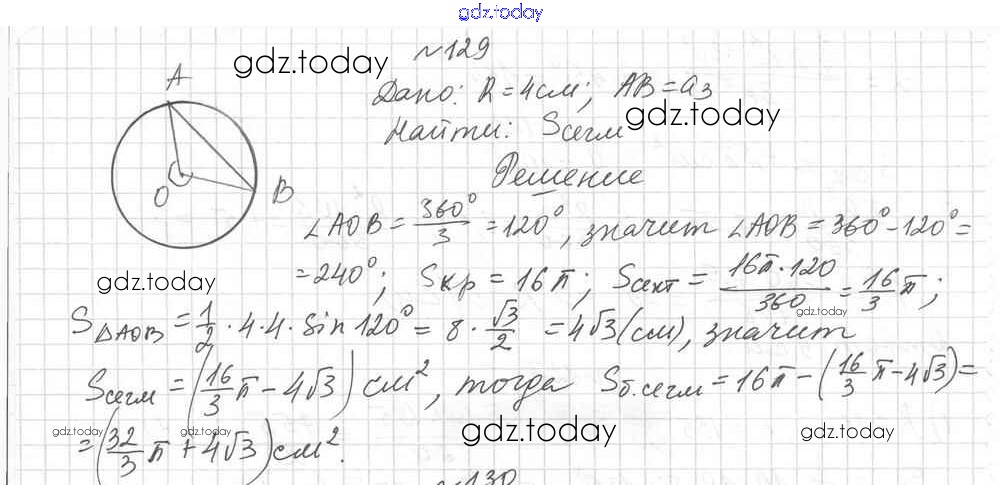 gdz.today
№129
gdz.today
A
Дано: R = 4см; AB = a₃
gdz.today
Найти: Sсегм
Решение
O
B
∠AOB = 360°/3 = 120°, значит ∠AOB = 360° - 120° =
gdz.today
= 240°; Sкр = 16π; Sсект = 16π·120/360 = 16/3 π;
gdz.today
S△AOB = 1/2 · 4 · 4 · sin 120° = 8 · √3/2 = 4√3 (см), значит
Sсегм = (16/3 π - 4√3) см², тогда Sб.сегм = 16π - (16/3 π - 4√3) =
gdz.today
gdz.today
gdz.today
gdz.today
= (32/3 π + 4√3) см².
№130